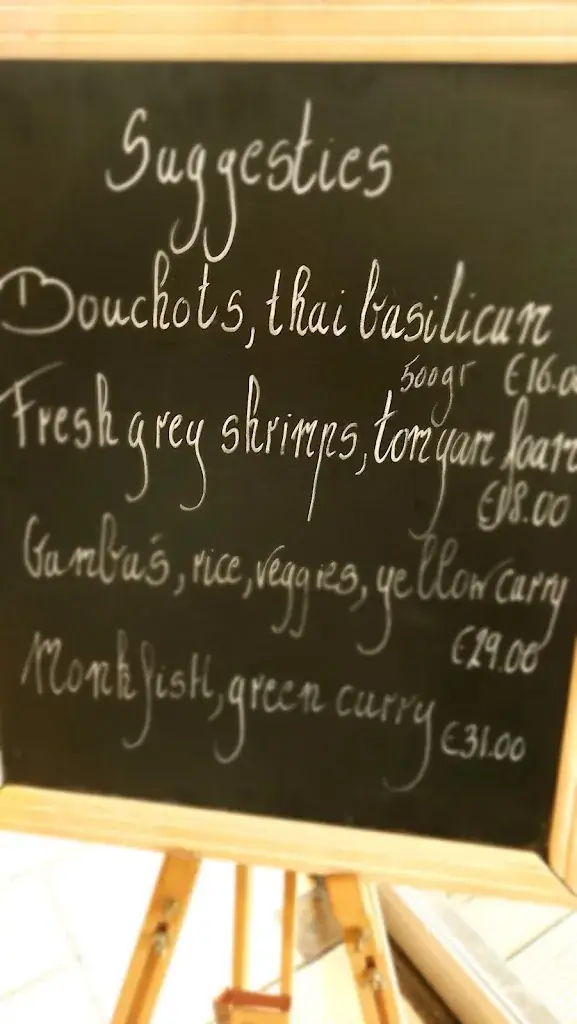 Suggesties
Bouchots, thai basilicum
500gr €16.0
Fresh grey shrimps, tomyan foam
€18.00
Gamba's, rice, veggies, yellow curry
€29.00
Monkfish, green curry
€31.00